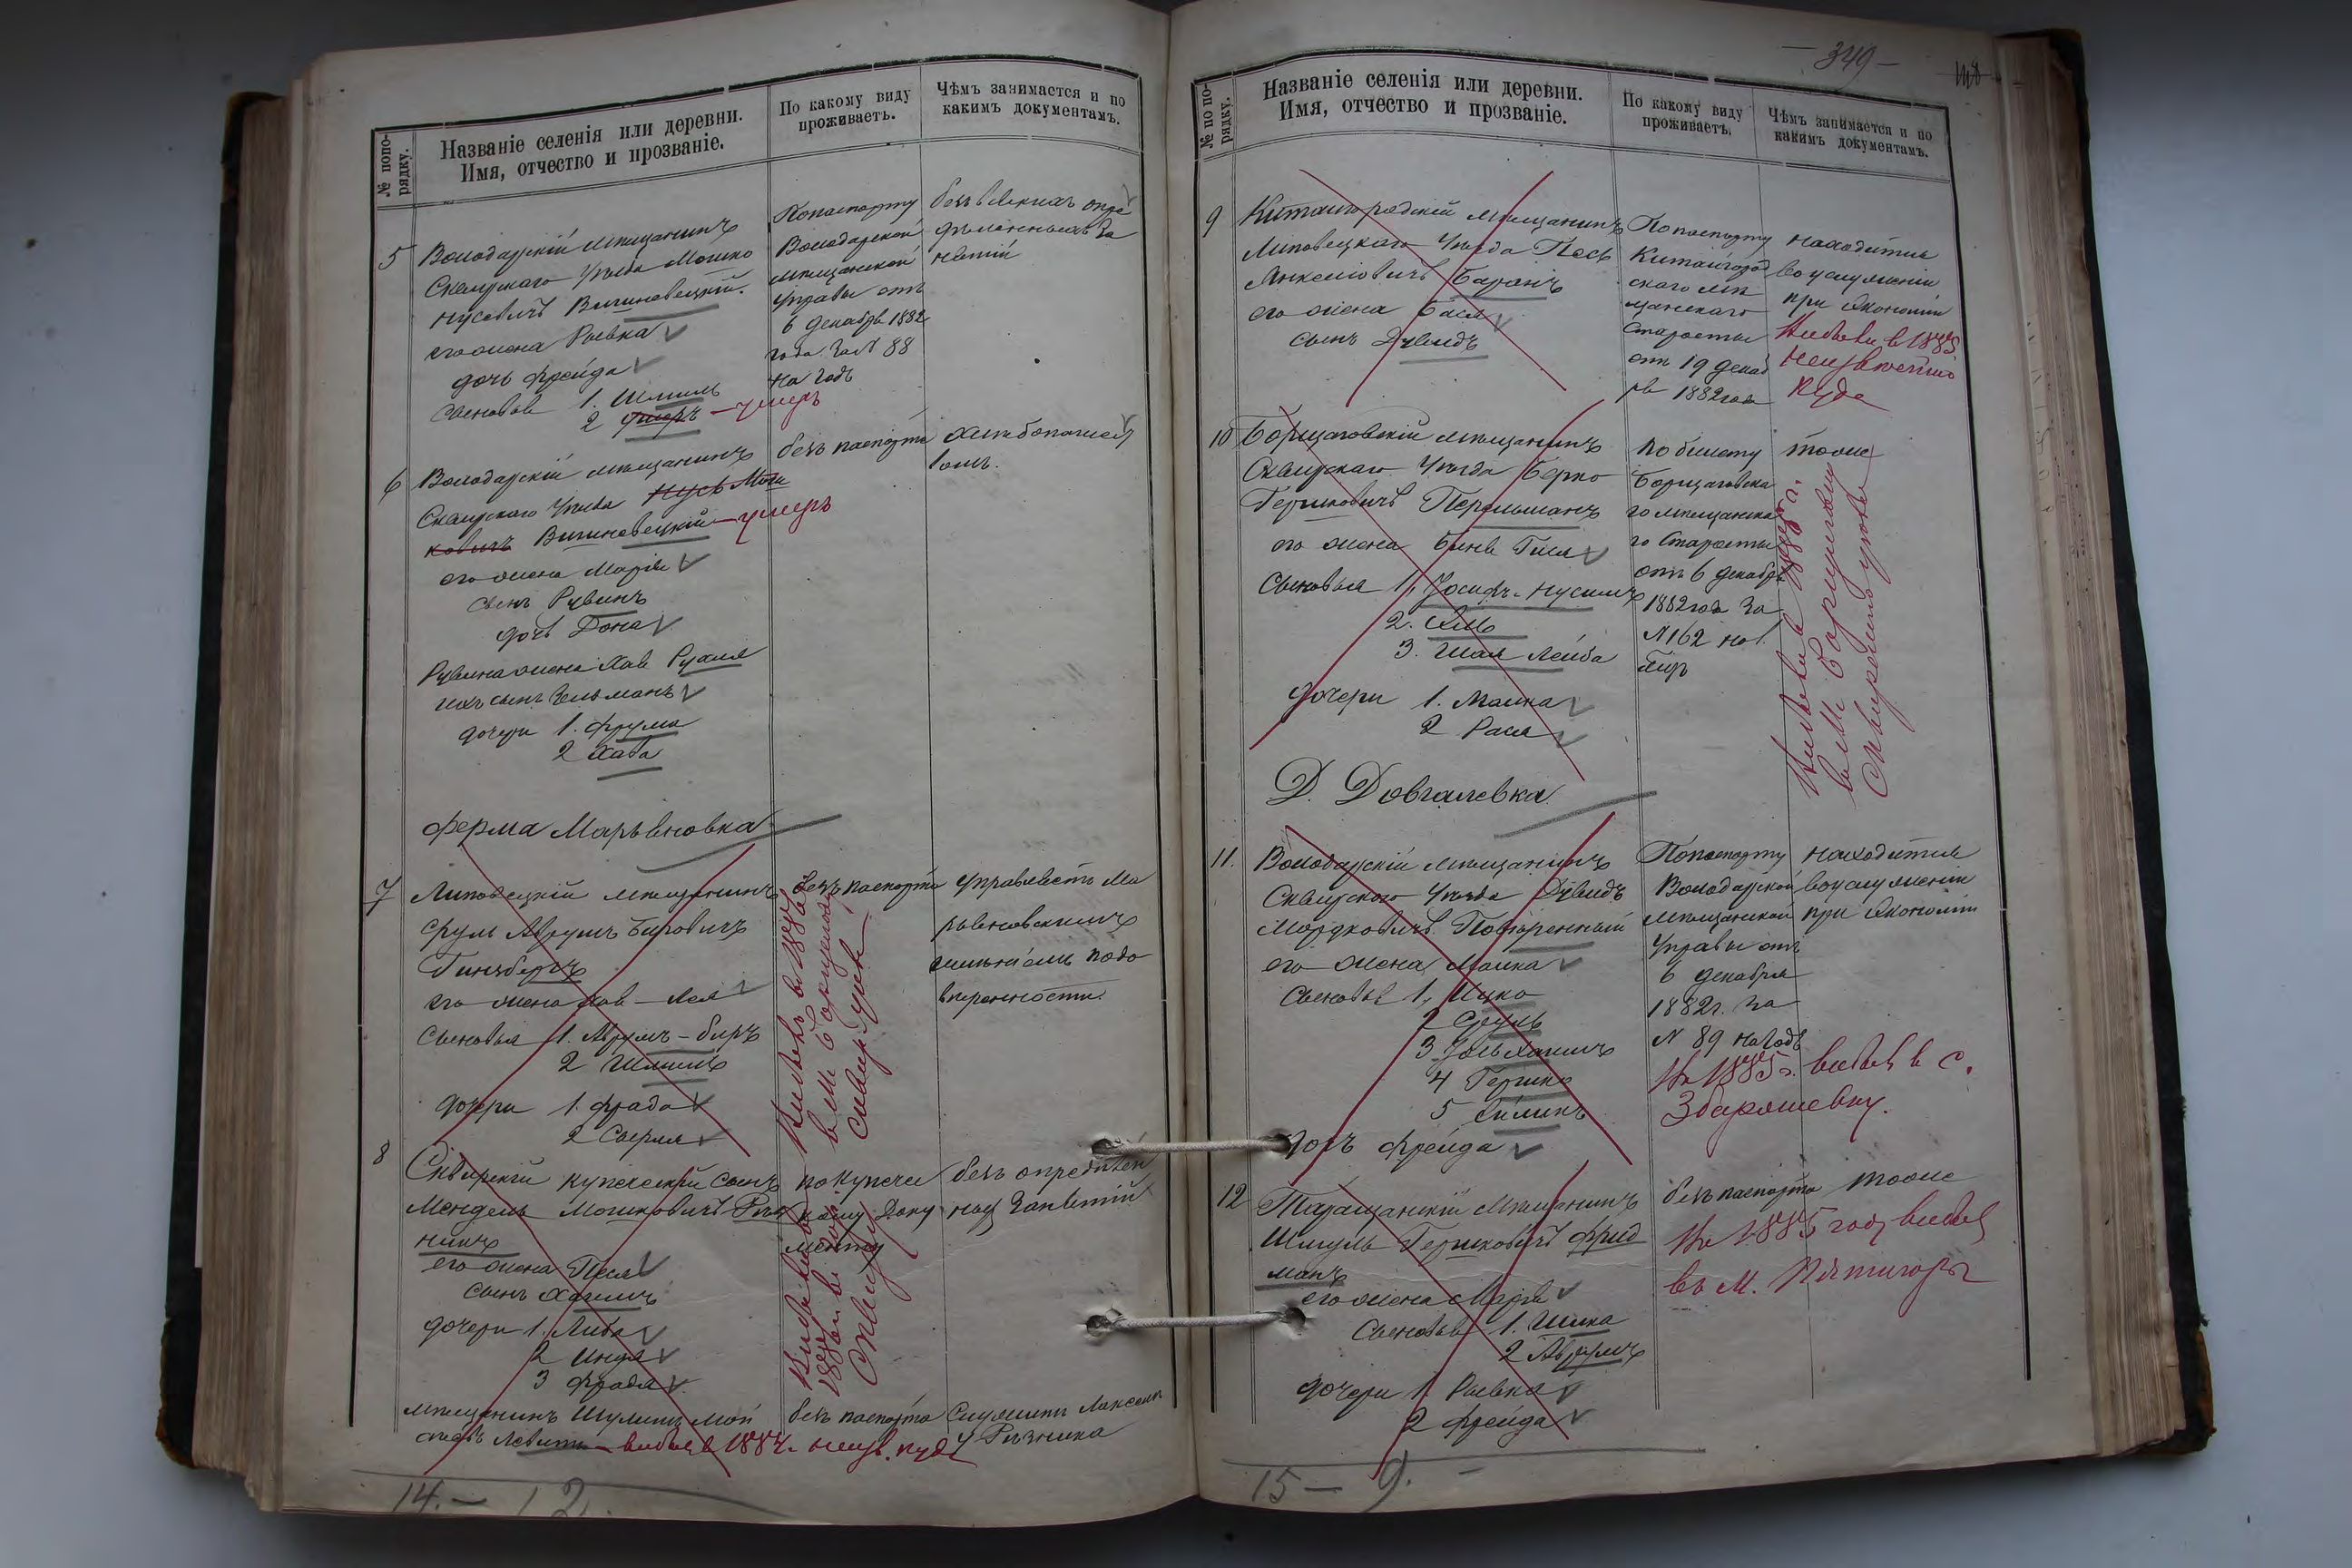 № попо-
рядку.
Названіе селенія или деревни.
Имя, отчество и прозваніе.
По какому виду
проживаетъ.
Чѣмъ занимается и по
какимъ документамъ.
5
Володарскій мѣщанинъ
Сквирскаго уѣзда Мошко
Нусевичъ Вишневецкій.
его жена Рывка
дочь Фрейда
сыновья 1. Шмиль
2
– умеръ
Попаспорту
Володарской
мѣщанской
Управы отъ
6 декабря 1882
года за № 88
на годъ
безъ всякихъ опре
дѣленныхъ за
нятій
6
Володарскій мѣщанинъ
Сквирскаго уѣзда Нусь Мош
ковичъ Вишневецкій – умеръ
его жена Марія
сынъ Рувинъ
дочь Дона
Рувина жена Хая Рухля
ихъ сынъ Зельманъ
дочери 1. Фрума
2 Хава
безъ паспорта
хлебопашест
вомъ.
Ферма Марьяновка
7
Липовецкій мѣщанинъ
Сруль Аврумъ Беровичъ
Гинзбергъ
его жена Хая-Лея
Сыновья 1. Аврумъ-Беръ
2 Шмиль
дочери 1. Фрада
2 Сверля
безъ паспорта
Управляетъ Ма
рьяновскимъ
имѣніемъ подо
вѣренности.
8
Сквирскій купеческій сынъ
Мендель Мошковичъ Рѣз
никъ
его жена Песя
сынъ Хаимъ
дочери 1. Либа
2 Индя
3 Фрадя
по купечес
кому доку
менту
безъ опредѣлен
ныхъ занятій
мѣщанинъ Шулимъ Мой
– выбылъ в 1884 г. неизв. куда
безъ паспорта
Служитъ
у Рѣзника
14. – 12.
– 349 –
№ по по-
рядку.
Названіе селенія или деревни.
Имя, отчество и прозваніе.
По какому виду
проживаетъ.
Чѣмъ занимается и по
какимъ документамъ.
9
Китайгородскій мѣщанинъ
Липовецкаго уѣзда Песь
Анкелiовичъ Баранъ
его жена Бася
сынъ Дувидъ
По паспорту
Китайгород
скаго мѣ
щанскаго
старосты
отъ 19 декаб
ря 1882 года
находится
в услуженіи
при экономіи
Выбыли в 1885
неизвестно
куда
10
Борщаговскій мѣщанинъ
Сквирскаго уѣзда Берко
Гершковичъ Перельманъ
его жена Бина Гися
Сыновья 1, Іосифъ-Нусимъ
2.
3. Шая Лейба
дочери 1. Малка
2 Рася
По билету
Борщаговска
го мѣщанска
го Старосты
отъ 6 декабря
1882 года за
№ 162 на 1
тоже
Д. Довгалевка
11.
Володарскій мѣщанинъ
Сквирскаго уѣзда Дувидъ
Мордковичъ
его жена Малка
Сыновья 1, Ицко
2 Сруль
3
4 Гершко
5 Зилинъ
дочь Фрейда
Попаспорту
Володарской
мѣщанской
Управы отъ
6 декабря
1882 г. за
№ 89 на годъ
находится
в услуженіи
при экономіи
На 1885 г. выбылъ в с.
Збаражевку.
12
Таращанскій мѣщанинъ
Шмуль Гершковичъ Фрид
манъ
его жена Марія
Сыновья 1. Шика
2 Аврумъ
дочери 1. Рывка
2 Фрейда
безъ паспорта
тоже
На 1885 годъ выбылъ
въ м. Пятигоры
15 – 9. –